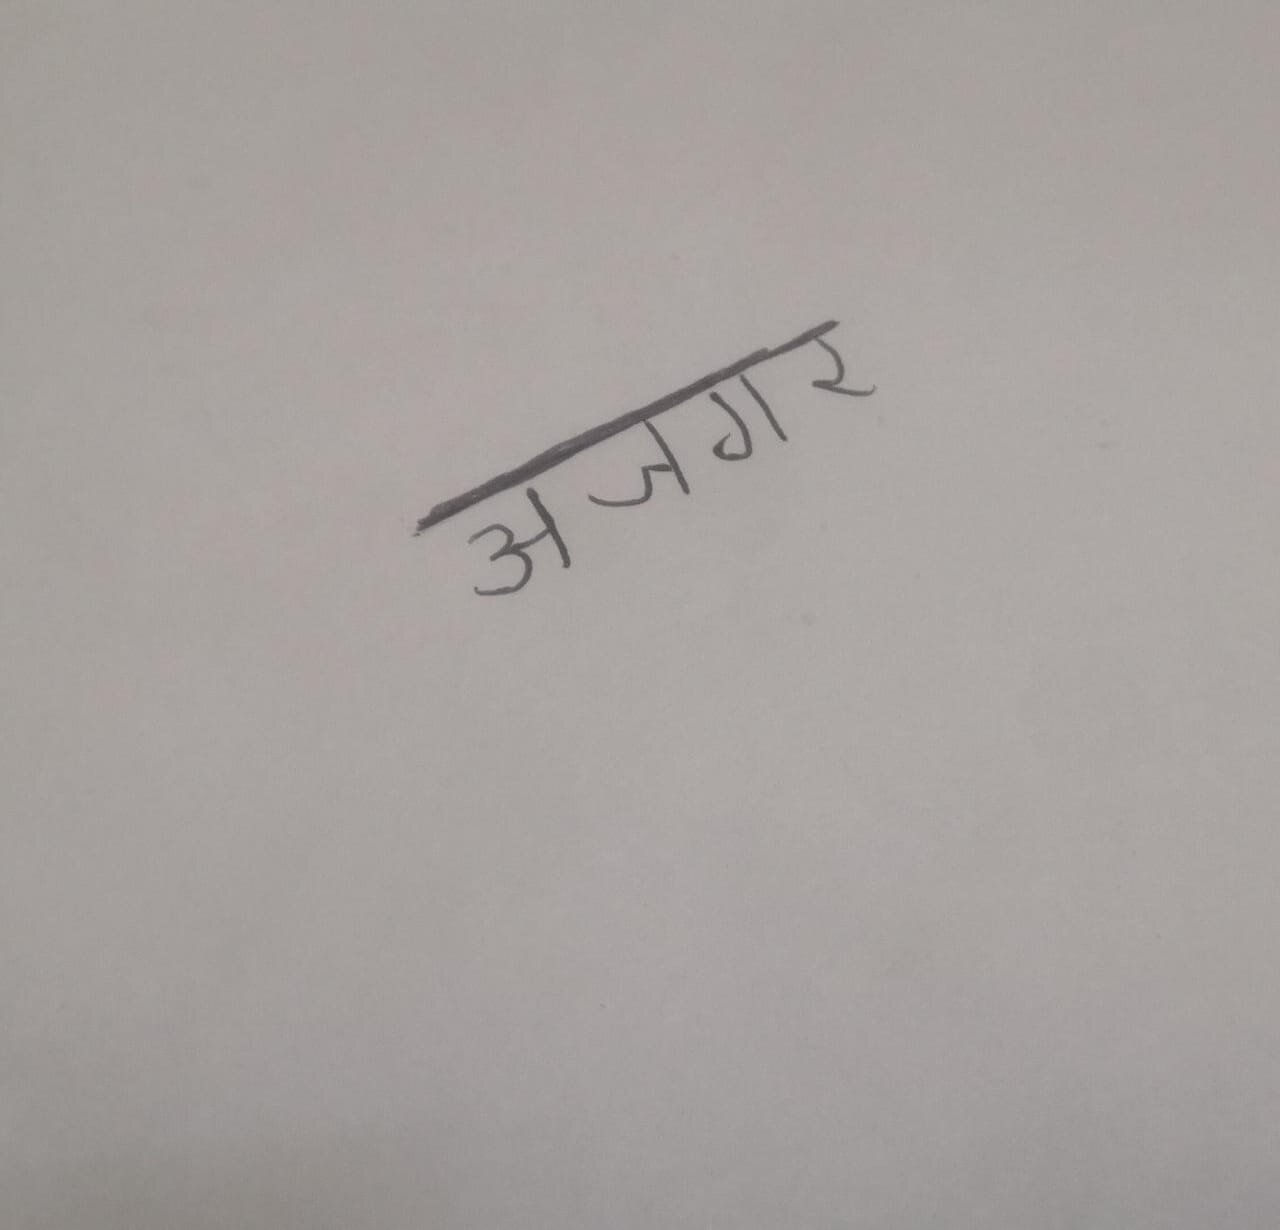 अजगर